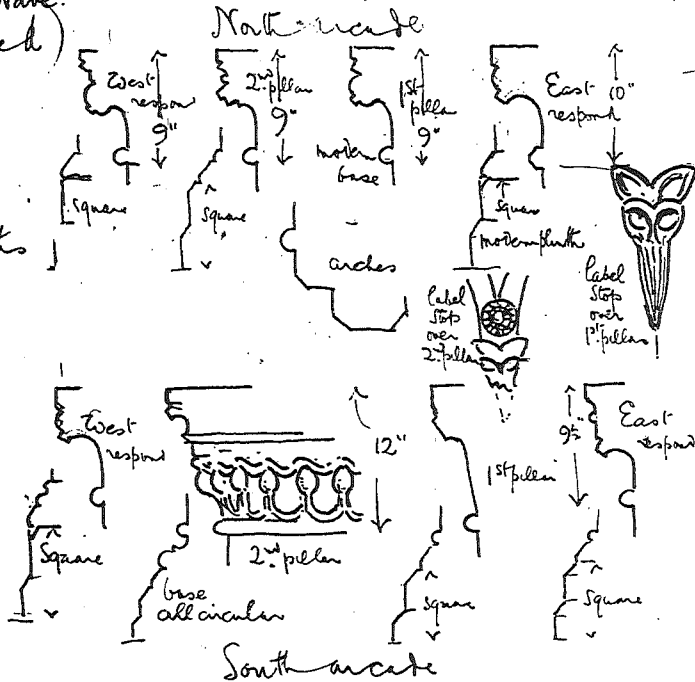 Nave.
ed)
North arcade
West
respond
9"
2nd pillar
9"
1st pillar
9"
East
respond
10"
square
square
modern
base
square
modern plinth
arches
label
stop
over
2nd pillar
label
stop
over
1st pillar
West
respond
12"
1st pillar
9½"
East
respond
Square
2nd pillar
base
all circular
square
square
South arcade